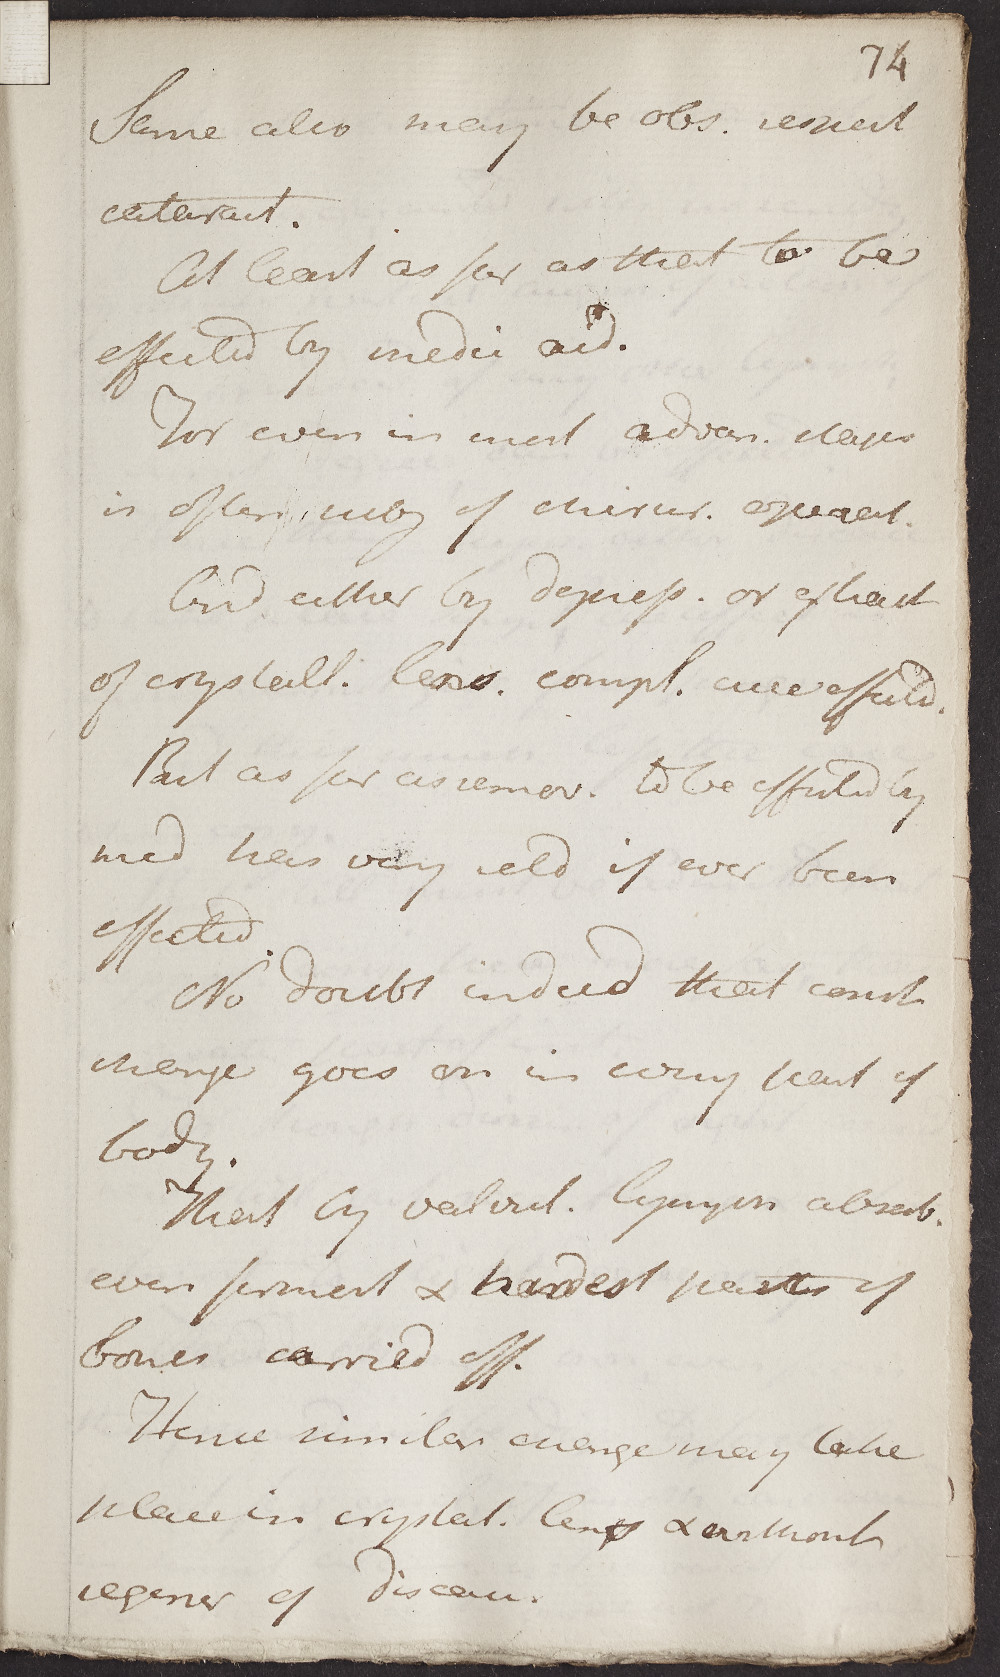 74
Same also may be obs. respect
cataract.
At least as far as that to be
effected by medic aid.
For even in most advan. stages
is often subj of chirur. operat.
And either by depress. or extract
of crystall. lens. compl. cure effectd.
But as far as remov. to be effected by
med has very seld if ever been
effected.
No doubt indeed that const
change goes on in every part of
body.
That by valvul. lymph absorb.
even firmest & hardest parts of
bones carried off.
Hence similar change may take
place in crystal. lens &
regener of disease.